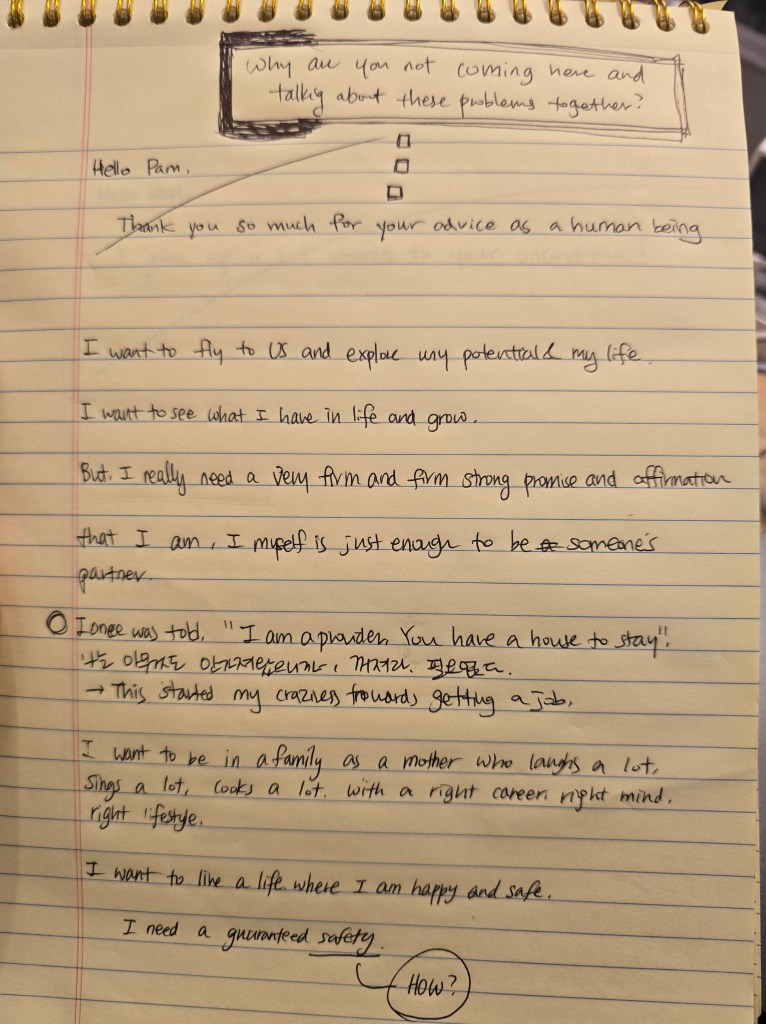 Why are you not coming here and
talkig about these problems together?
Hello Pam.
Thank you so much for your advice as a human being
I want to fly to US and explore my potential & my life.
I want to see what I have in life and grow.
But, I really need a very firm and firm strong promise and affirmation
that I am, I myself is just enough to be someone's
partner.
I once was told, "I am a provider. You have a house to stay".
나는 아무것도 안가져왔으니까, 꺼져라. 필요없다.
→ This started my crazness towards getting a job.
I want to be in a family as a mother who laughs a lot,
sings a lot, cooks a lot. with a right career, right mind,
right lifestye.
I want to live a life where I am happy and safe.
I need a guuranteed safety.
How?